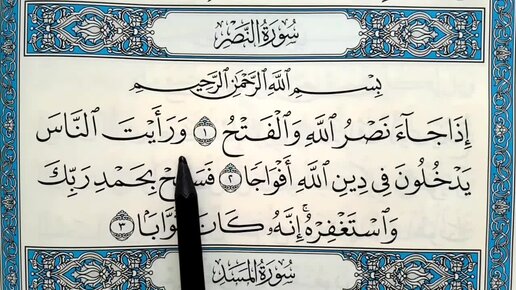 سُورَةُ النَّصْرِ
بِسْمِ ٱللَّهِ ٱلرَّحْمَٰنِ ٱلرَّحِيمِ
إِذَا جَآءَ نَصْرُ ٱللَّهِ وَٱلْفَتْحُ ١ وَرَأَيْتَ ٱلنَّاسَ
يَدْخُلُونَ فِى دِينِ ٱللَّهِ أَفْوَاجًا ٢ بِحَمْدِ رَبِّكَ
وَٱسْتَغْفِرْهُ ۚ إِنَّهُۥ كَانَ ٣
سُورَةُ المَسَدِ